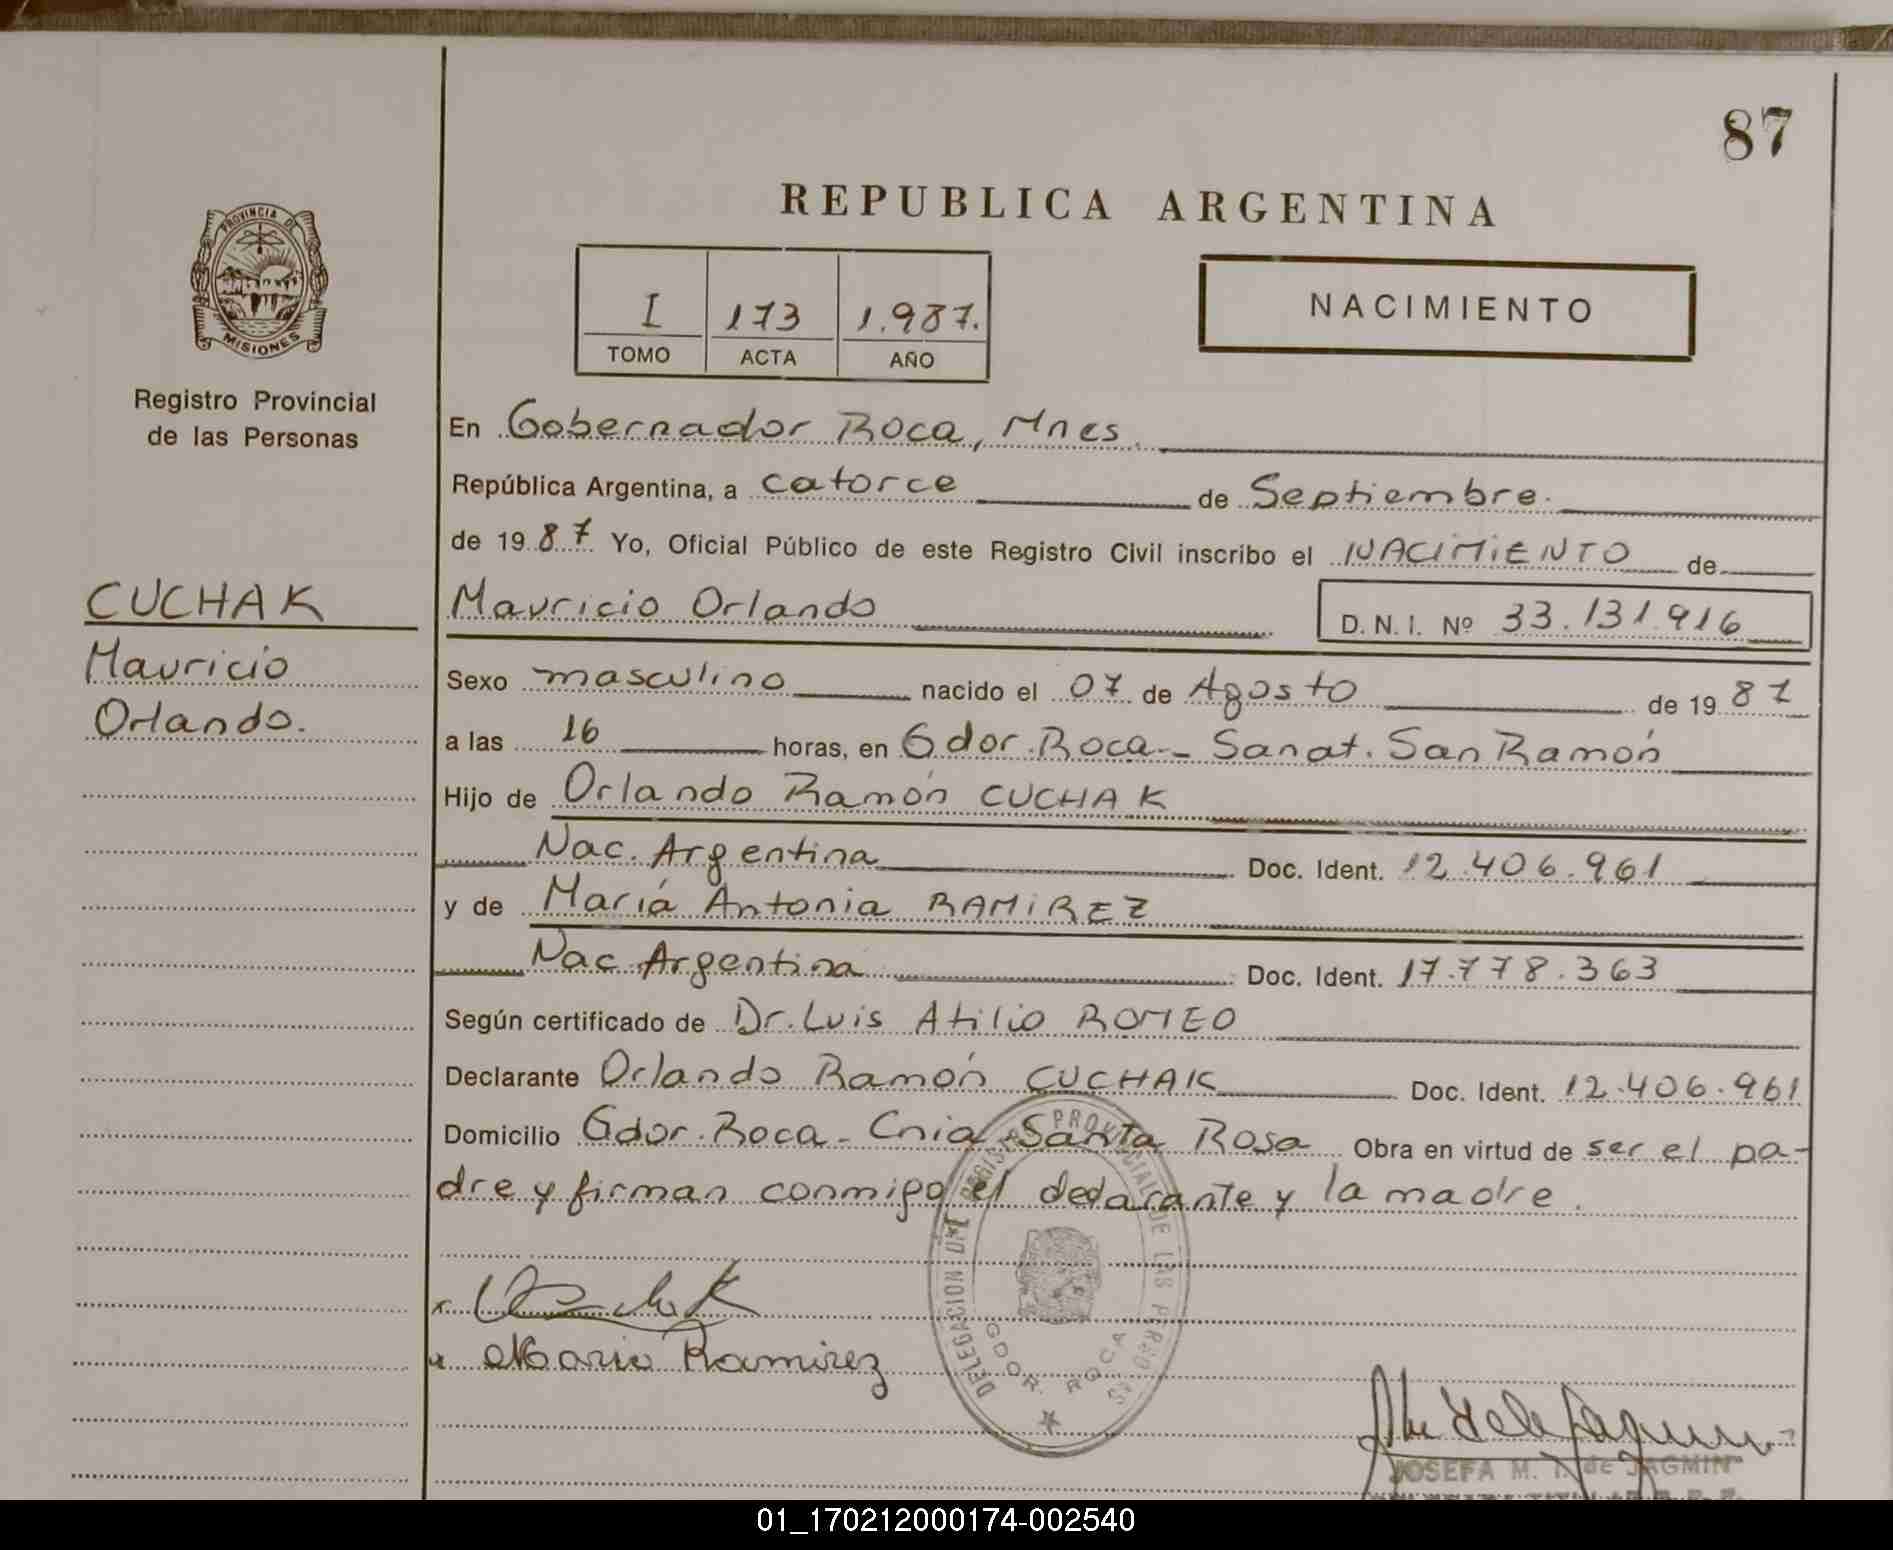 87
REPUBLICA ARGENTINA
PROVINCIA DE
MISIONES
Registro Provincial
de las Personas
I 173 1.987.
TOMO ACTA AÑO
NACIMIENTO
En Gobernador Roca, Mnes.
República Argentina, a catorce de Septiembre.
de 1987 Yo, Oficial Público de este Registro Civil inscribo el NACIMIENTO de
CUCHAK
Mauricio
Orlando.
Mauricio Orlando D.N.I. Nº 33.131.916
Sexo masculino nacido el 07 de Agosto de 1987
a las 16 horas, en Gdor. Roca - Sanat. San Ramón
Hijo de Orlando Ramón CUCHAK
Nac. Argentina Doc. Ident. 12.406.961
y de María Antonia RAMIREZ
Nac. Argentina Doc. Ident. 17.778.363
Según certificado de Dr. Luis Atilio ROMEO
Declarante Orlando Ramón CUCHAK Doc. Ident. 12.406.961
Domicilio Gdor. Roca - Cnia Santa Rosa Obra en virtud de ser el pa-
dre y firman conmigo el declarante y la madre.
DELEGACION DEL REGISTRO PROVINCIAL DE LAS PERSONAS
GDOR. ROCA
x
x Maria Ramirez
JOSEFA M. T. de JAGMIN
01_170212000174-002540